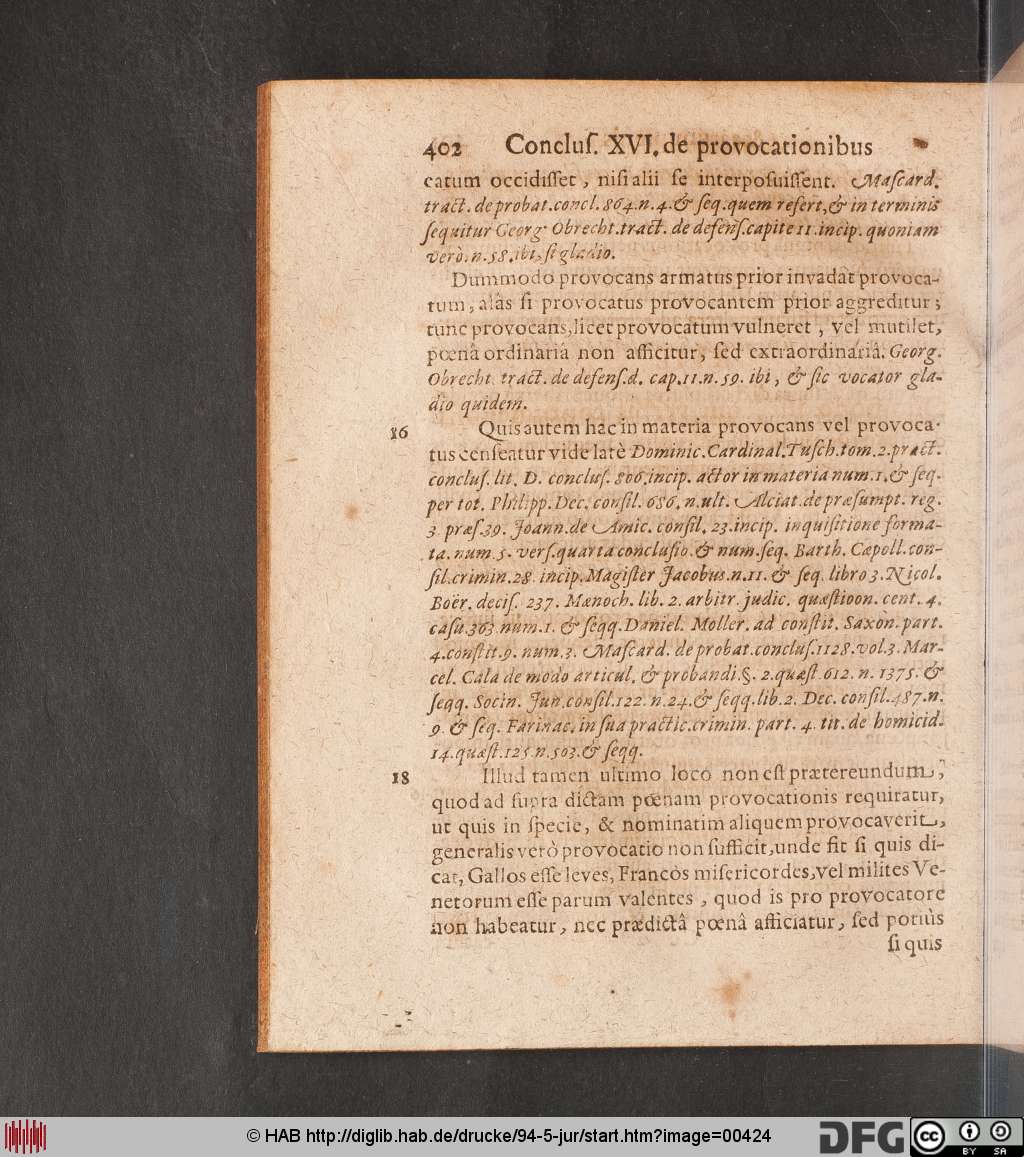 402 Concluſ. XVI. de provocationibus
catum occidiſſet, niſi alii ſe interpoſuiſſent. Maſcard.
tract. de probat. concl. 864. n. 4. & ſeq. quem refert, & in terminis
ſequitur Georg Obrecht. tract. de defenſ. capite 11. incip. quoniam
verò. n. 58. ibi, ſi gladio.
Dummodo provocans armatus prior invadat provoca-
tum, aliàs ſi provocatus provocantem prior aggreditur;
tunc provocans, licet provocatum vulneret, vel mutilet,
pœnâ ordinariâ non afficitur, ſed extraordinariâ. Georg.
Obrecht. tract. de defenſ. d. cap. 11. n. 59. ibi, & ſic vocator gla-
dio quidem.
16 Quis autem hac in materia provocans vel provoca-
tus cenſeatur vide latè Dominic. Cardinal. Tuſch. tom. 2. pract.
concluſ. lit. D. concluſ. 806. incip. actor in materia num. 1. & ſeq.
per tot. Philipp. Dec. conſil. 686. n. ult. Alciat. de præſumpt. reg.
3. præſ. 39. Joann. de Amic. conſil. 23. incip. inquiſitione forma-
ta. num. 5. verſ. quarta concluſio. & num. ſeq. Barth. Cæpoll. con-
ſil. crimin. 28. incip. Magiſter Jacobus. n. 11. & ſeq. libro 3. Nicol.
Boër. deciſ. 237. Mænoch. lib. 2. arbitr. judic. quæſtioon. cent. 4.
caſu. 363. num. 1. & ſeqq. Daniel. Moller. ad conſtit. Saxon. part.
4. conſtit. 9. num. 3. Maſcard. de probat. concluſ. 1128. vol. 3. Mar-
cel. Cala de modo articul. & probandi. §. 2. quæſt. 612. n. 1375. &
ſeqq. Socin. Jun. conſil. 122. n. 24. & ſeqq. lib. 2. Dec. conſil. 487. n.
9. & ſeq. Farinac. in ſua practic. crimin. part. 4. tit. de homicid.
14. quæſt. 125. n. 503. & ſeqq.
18 Illud tamen ultimo loco non eſt prætereundum,
quod ad ſupra dictam pœnam provocationis requiratur,
ut quis in ſpecie, & nominatim aliquem provocaverit,
generalis verò provocatio non ſufficit, unde fit ſi quis di-
cat, Gallos eſſe leves, Francos miſericordes, vel milites Ve-
netorum eſſe parum valentes, quod is pro provocatore
non habeatur, nec prædictâ pœnâ afficiatur, ſed potiùs
ſi quis
© HAB http://diglib.hab.de/drucke/94-5-jur/start.htm?image=00424
DFG
cc BY SA